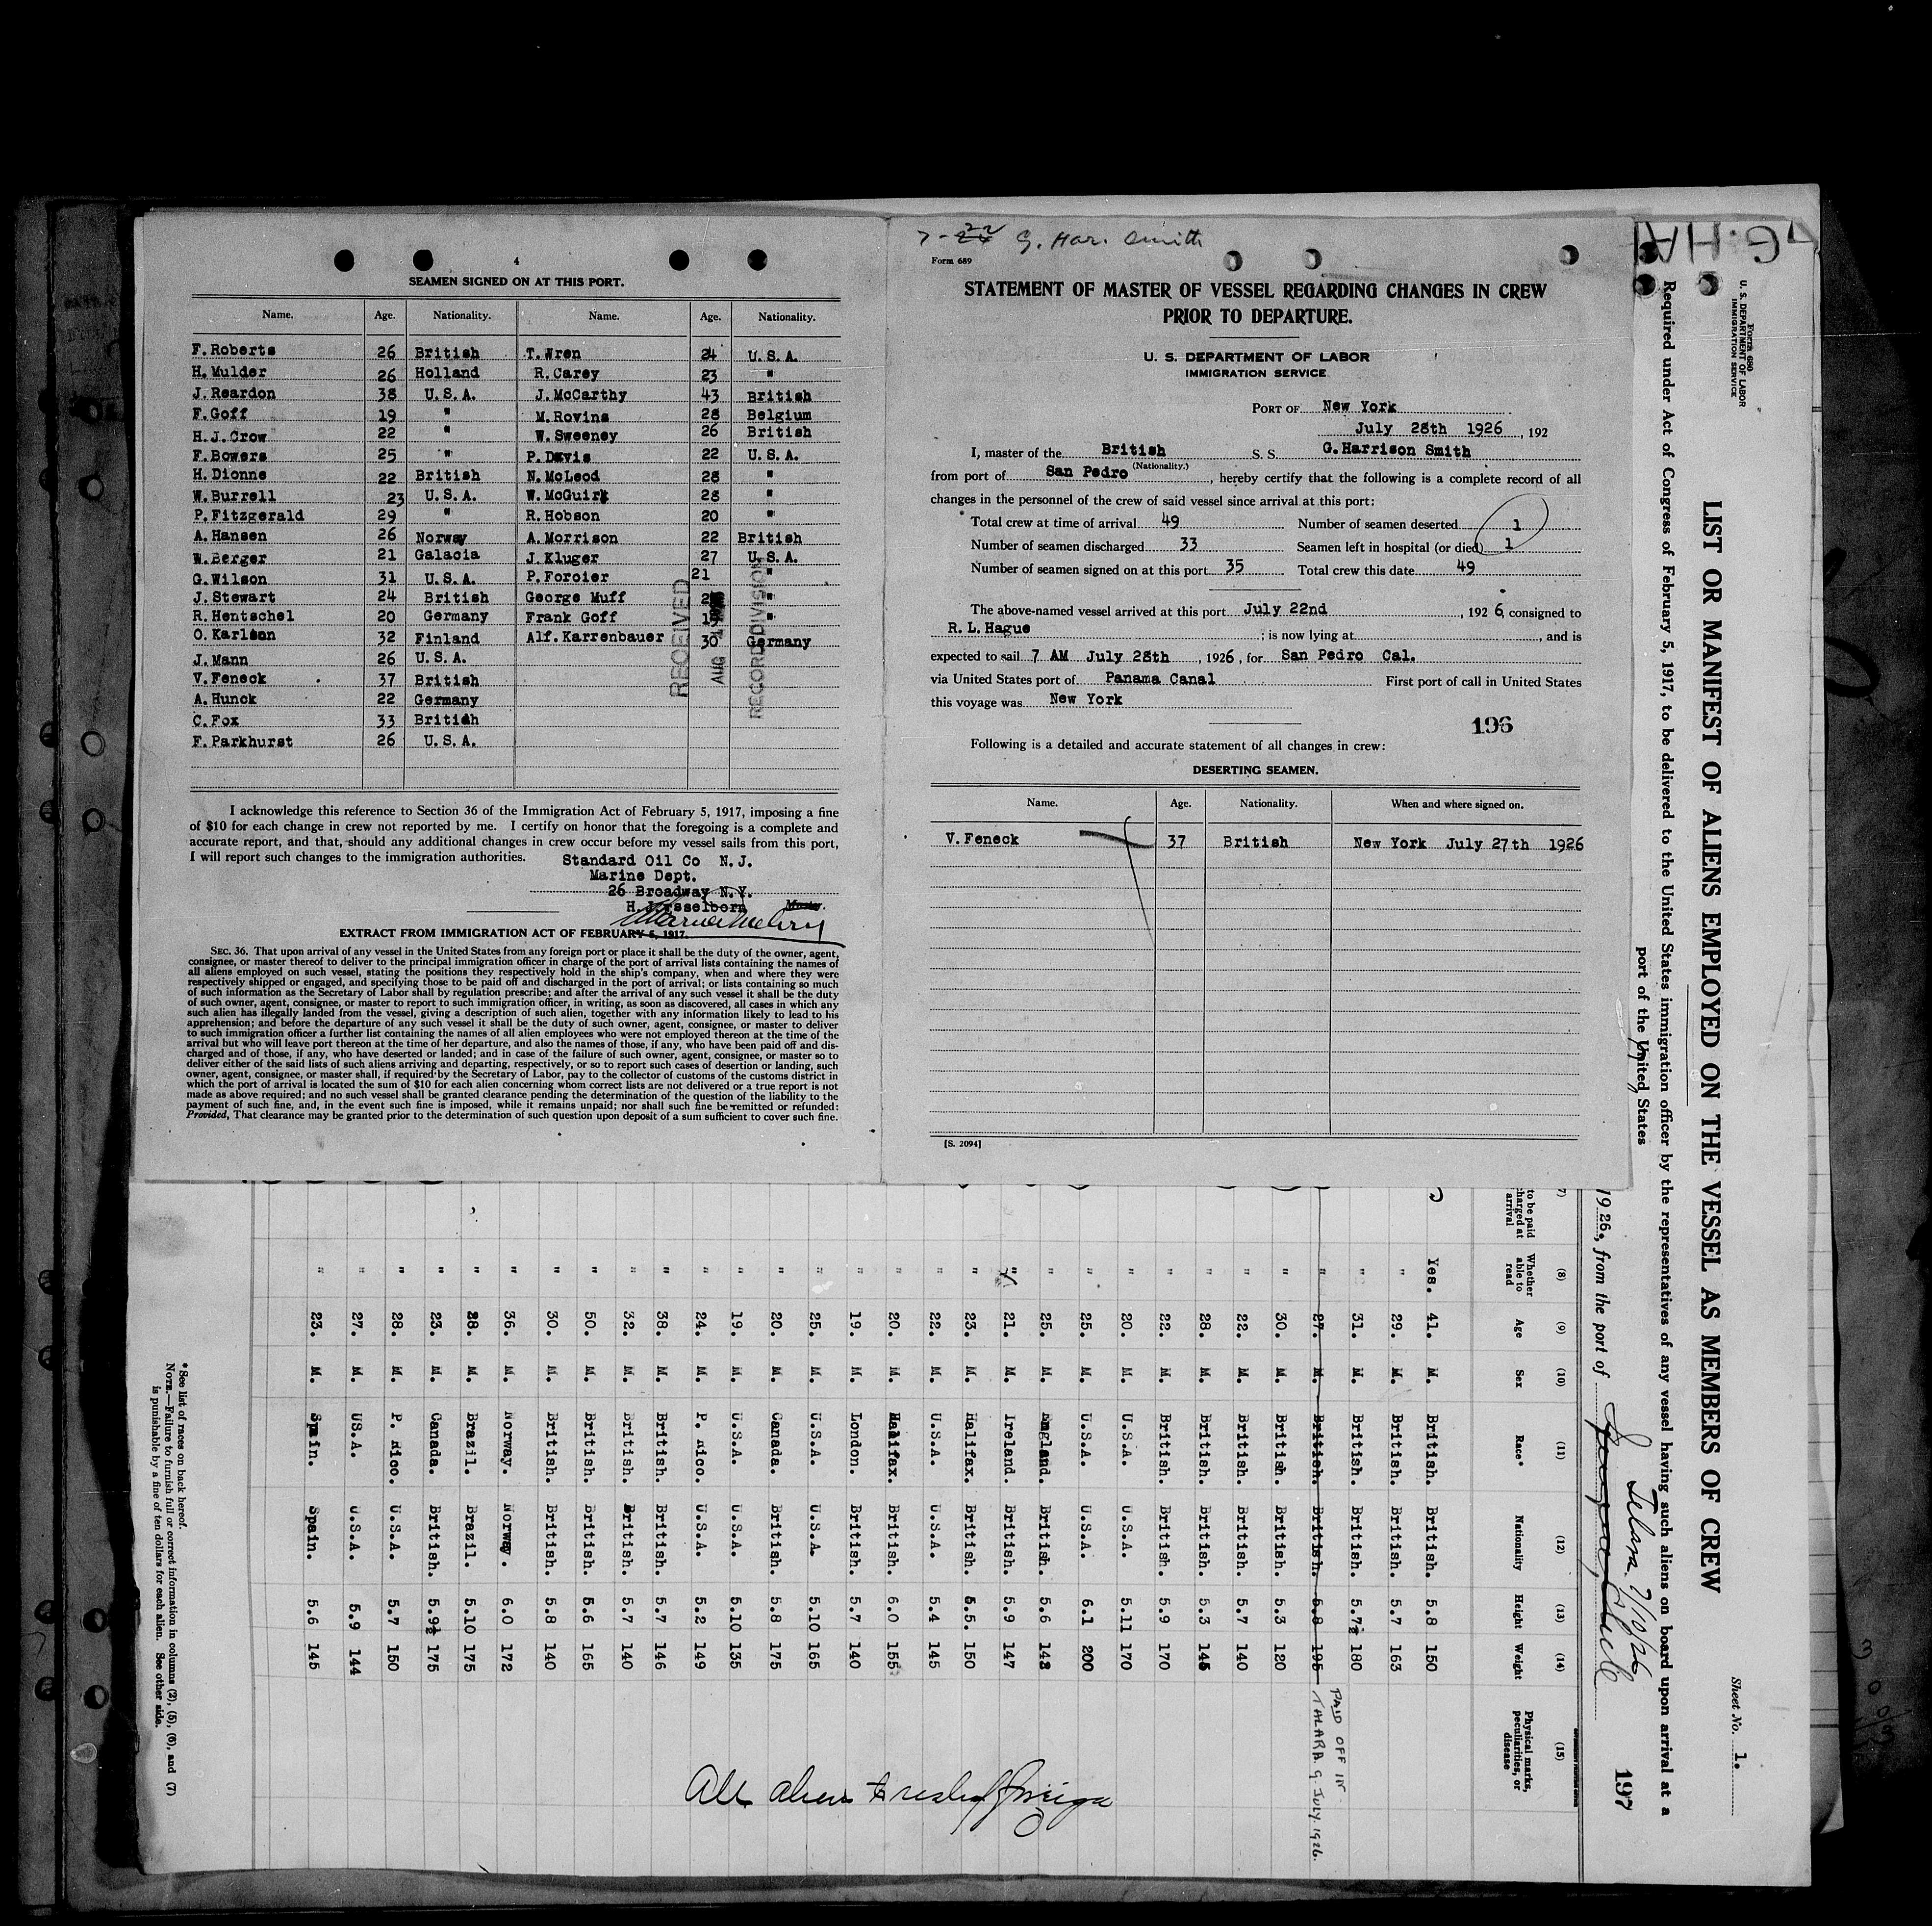 4
SEAMEN SIGNED ON AT THIS PORT.
Name. Age. Nationality. Name. Age. Nationality.
F. Roberts 26 British T. Wren 24 U.S.A.
H. Mulder 26 Holland R. Carey 23 "
J. Reardon 38 U.S.A. J. McCarthy 43 British
F. Goff 19 " M. Rovins 28 Belgium
H.J. Crow 22 " W. Sweeney 26 British
F. Bowers 25 " P. Davis 22 U.S.A.
H. Dionne 22 British N. McLeod 28 "
W. Burrell 23 U.S.A. W. McGuirk 28 "
P. Fitzgerald 29 " R. Hobson 20 "
A. Hansen 26 Norway A. Morrison 22 British
W. Berger 21 Galacia J. Kluger 27 U.S.A.
G. Wilson 31 U.S.A. P. Forcier 21 "
J. Stewart 24 British George Muff "
R. Hentschel 20 Germany Frank Goff "
O. Karlson 32 Finland Alf. Karrenbauer 30 Germany
J. Mann 26 U.S.A.
V. Feneck 37 British
A. Hunck 22 Germany
C. Fox 33 British
F. Parkhurst 26 U.S.A.
RECEIVED
AUG
RECORD DIVISION
I acknowledge this reference to Section 36 of the Immigration Act of February 5, 1917, imposing a fine
of $10 for each change in crew not reported by me. I certify on honor that the foregoing is a complete and
accurate report, and that, should any additional changes in crew occur before my vessel sails from this port,
I will report such changes to the immigration authorities.
Standard Oil Co N.J.
Marine Dept.
26 Broadway N.Y.
Master.
EXTRACT FROM IMMIGRATION ACT OF FEBRUARY 5, 1917.
SEC. 36. That upon arrival of any vessel in the United States from any foreign port or place it shall be the duty of the owner, agent,
consignee, or master thereof to deliver to the principal immigration officer in charge of the port of arrival lists containing the names of
all aliens employed on such vessel, stating the positions they respectively hold in the ship's company, when and where they were
respectively shipped or engaged, and specifying those to be paid off and discharged in the port of arrival; or lists containing so much
of such information as the Secretary of Labor shall by regulation prescribe; and after the arrival of any such vessel it shall be the duty
of such owner, agent, consignee, or master to report to such immigration officer, in writing, as soon as discovered, all cases in which any
such alien has illegally landed from the vessel, giving a description of such alien, together with any information likely to lead to his
apprehension; and before the departure of any such vessel it shall be the duty of such owner, agent, consignee, or master to deliver
to such immigration officer a further list containing the names of all alien employees who were not employed thereon at the time of the
arrival but who will leave port thereon at the time of her departure, and also the names of those, if any, who have been paid off and dis-
charged and of those, if any, who have deserted or landed; and in case of the failure of such owner, agent, consignee, or master so to
deliver either of the said lists of such aliens arriving and departing, respectively, or so to report such cases of desertion or landing, such
owner, agent, consignee, or master shall, if required by the Secretary of Labor, pay to the collector of customs of the customs district in
which the port of arrival is located the sum of $10 for each alien concerning whom correct lists are not delivered or a true report is not
made as above required; and no such vessel shall be granted clearance pending the determination of the question of the liability to the
payment of such fine, and, in the event such fine is imposed, while it remains unpaid; nor shall such fine be remitted or refunded:
Provided, That clearance may be granted prior to the determination of such question upon deposit of a sum sufficient to cover such fine.
7-22 G. Har. Smith
Form 689
STATEMENT OF MASTER OF VESSEL REGARDING CHANGES IN CREW
PRIOR TO DEPARTURE.
U. S. DEPARTMENT OF LABOR
IMMIGRATION SERVICE
PORT OF New York
July 28th 1926, 192
I, master of the British S. S. G. Harrison Smith
(Nationality.)
from port of San Pedro, hereby certify that the following is a complete record of all
changes in the personnel of the crew of said vessel since arrival at this port:
Total crew at time of arrival 49 Number of seamen deserted 1
Number of seamen discharged 33 Seamen left in hospital (or died) 1
Number of seamen signed on at this port 35 Total crew this date 49
The above-named vessel arrived at this port July 22nd, 1926, consigned to
R. L. Hague; is now lying at, and is
expected to sail 7 AM July 28th, 1926, for San Pedro Cal.
via United States port of Panama Canal First port of call in United States
this voyage was New York
196
Following is a detailed and accurate statement of all changes in crew:
DESERTING SEAMEN.
Name. Age. Nationality. When and where signed on.
V. Feneck 37 British New York July 27th 1926
[S. 2094]
G. HA
Form 680
U. S. DEPARTMENT OF LABOR
IMMIGRATION SERVICE
Sheet No. 1.
LIST OR MANIFEST OF ALIENS EMPLOYED ON THE VESSEL AS MEMBERS OF CREW
Required under Act of Congress of February 5, 1917, to be delivered to the United States immigration officer by the representatives of any vessel having such aliens on board upon arrival at a
port of the United States
197
1926, from the port of Talara 7/10/26
(7) to be paid charged at arrival (8) Whether able to read (9) Age (10) Sex (11) Race* (12) Nationality (13) Height (14) Weight (15) Physical marks, peculiarities, or disease
Yes. 41. M. British. British. 5.8 150
" 29. M. British. British. 5.7 163
" 31. M. British. British. 5.7½ 180
" 27. M. British. British. 5.8 195 PAID OFF IN TALARA 9. JULY. 1926.
" 30. M. British. British. 5.3 120
" 22. M. British. British. 5.7 140
" 28. M. British. British. 5.3 145
" 22. M. British. British. 5.9 170
" 20. M. U.S.A. U.S.A. 5.11 170
" 25. M. U.S.A. U.S.A. 6.1 200
" 25. M. England. British. 5.6 148
" 21. M. Ireland. British. 5.9 147
" 23. M. Halifax. British. 5.5. 150
" 22. M. U.S.A. U.S.A. 5.4 145
" 20. M. Halifax. British. 6.0 155
" 19. M. London. British. 5.7 140
" 25. M. U.S.A. U.S.A. 5.10 165
" 20. M. Canada. British. 5.8 175
" 19. M. U.S.A. U.S.A. 5.10 135
" 24. M. P. Rico. U.S.A. 5.2 149
" 38. M. British. British. 5.7 146
" 32. M. British. British. 5.7 140
" 50. M. British. British. 5.6 165
" 30. M. British. British. 5.8 140
" 36. M. Norway. Norway. 6.0 172
" 28. M. Brazil. Brazil. 5.10 175
" 23. M. Canada. British. 5.9½ 175
" 28. M. P. Rico. U.S.A. 5.7 150
" 27. M. US.A. U.S.A. 5.9 144
" 23. M. Spain. Spain. 5.6 145
All aliens to reship foreign
*See list of races on back hereof.
NOTE.—Failure to furnish full or correct information in columns (2), (5), (6), and (7)
is punishable by a fine of ten dollars for each alien. See other side.